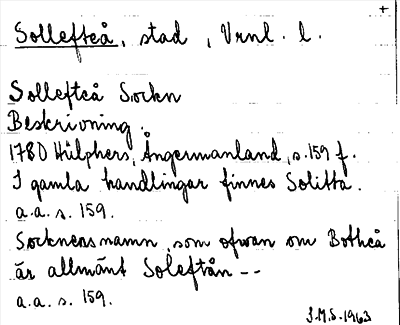 +
Sollefteå, stad, Vrnl. l.
Sollefteå Sockn
Beskrivning.
1780 Hülphers, Ångermanland, s. 159 f.
I gamla handlingar finnes Solitta.
a.a. s. 159.
Socknens namn, som ofwan om Botheå
är allmänt Soleftån --
a.a. s. 159.
J.M.S. 1963